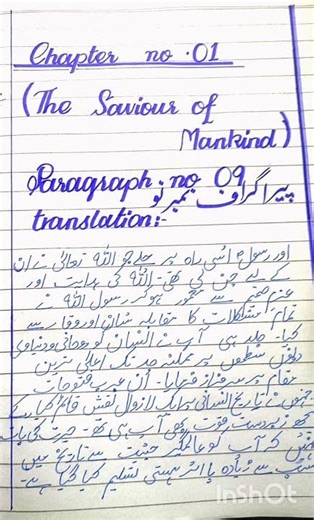 Chapter no .01
(The Saviour of
Mankind)
Paragraph no 09 پیراگراف نمبر نو
translation:-
اور رسولؐ اسی راہ پر چلے جو اللہ تعالیٰ نے ان
کے لیے چن لی تھی۔ اللہ کی ہدایت اور
عزم صمیم سے معمور ہو کر رسول اللہ نے
تمام مشکلات کا مقابلہ شان و وقار سے
کیا۔ جلد ہی آپ نے انسان کو روحانی و دنیاوی
دونوں سطحوں پر ممکنہ حد تک اعلیٰ ترین
مقام پر سرفراز فرمایا۔ ان عرب فتوحات
جنہوں نے تاریخ انسانی پر ایک لازوال نقش قائم کیا، کے
پیچھے زبردست قوت بھی آپ ہی تھے۔ حیرت کی بات
نہیں کہ آپ کو عالمگیر حیثیت سے تاریخ میں
سب سے زیادہ با اثر ہستی تسلیم کیا گیا ہے۔
InShOt